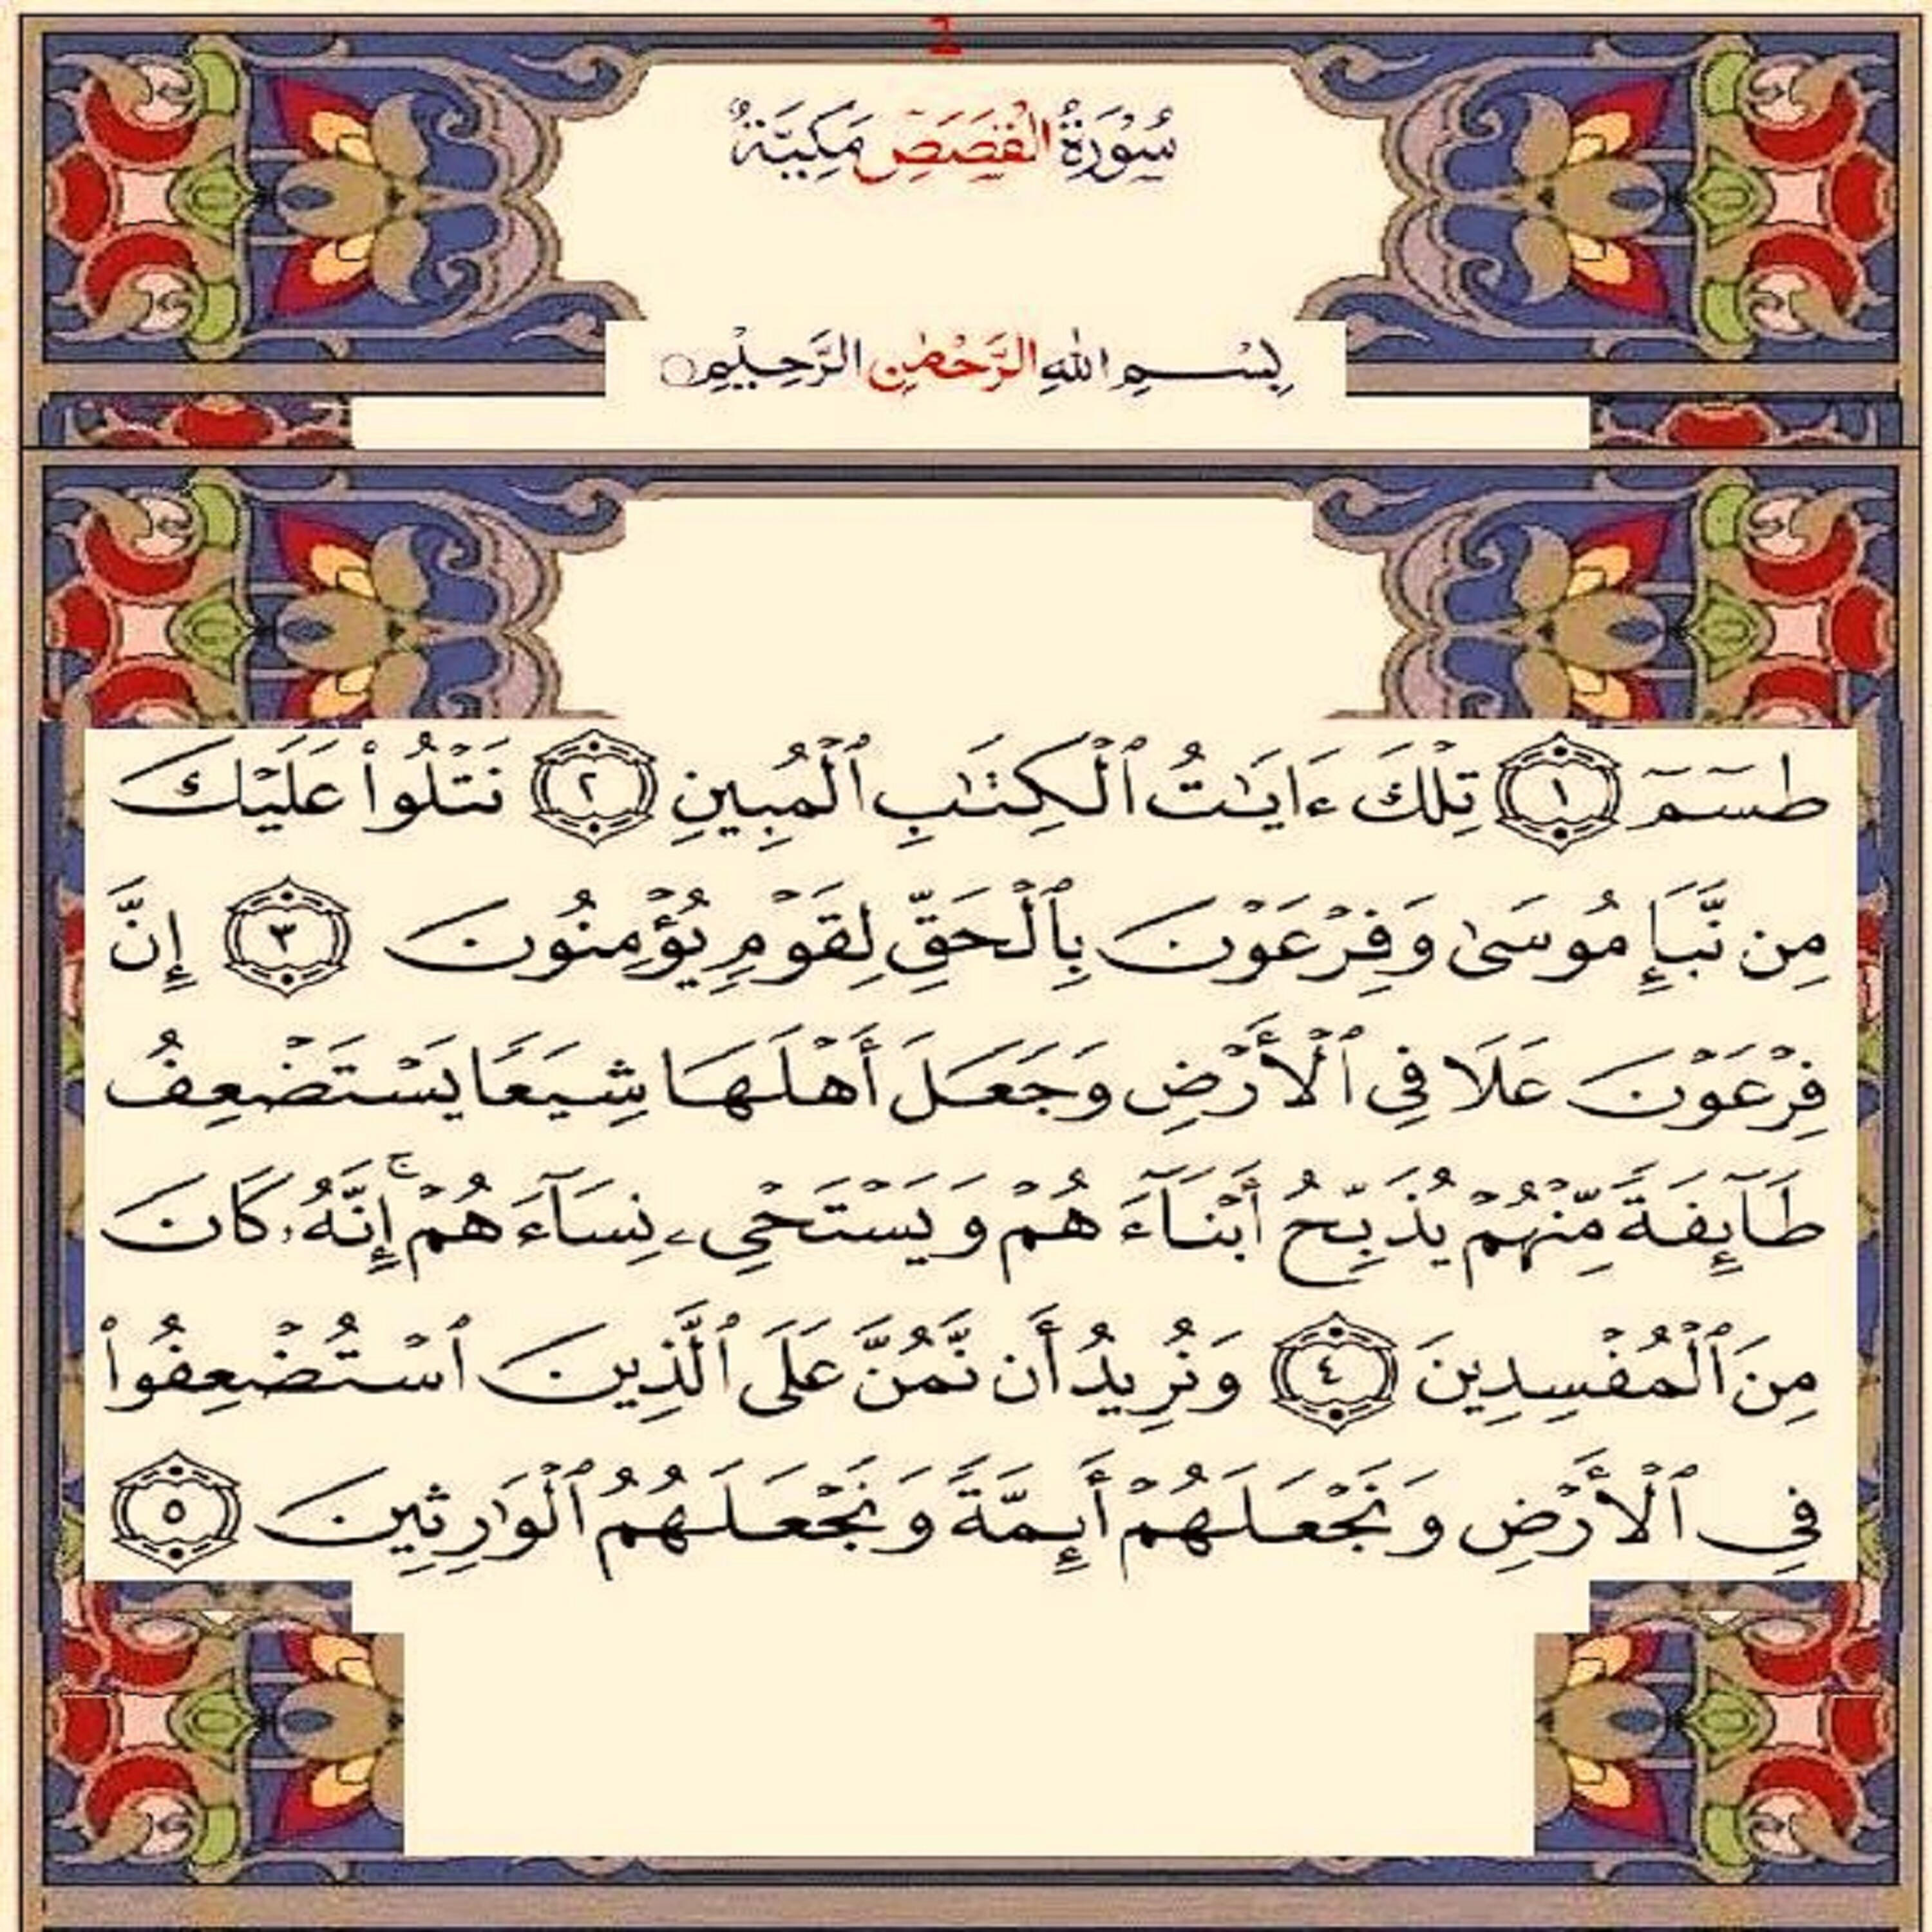 1
سُوْرَةُ الْقَصَصِ مَكِّيَّةٌ
بِسْمِ اللهِ الرَّحْمٰنِ الرَّحِيْمِ
طسٓمٓ ١ تِلْكَ ءَايَٰتُ ٱلْكِتَٰبِ ٱلْمُبِينِ ٢ نَتْلُوا۟ عَلَيْكَ
مِن نَّبَإِ مُوسَىٰ وَفِرْعَوْنَ بِٱلْحَقِّ لِقَوْمٍ يُؤْمِنُونَ ٣ إِنَّ
فِرْعَوْنَ عَلَا فِى ٱلْأَرْضِ وَجَعَلَ أَهْلَهَا شِيَعًا يَسْتَضْعِفُ
طَآئِفَةً مِّنْهُمْ يُذَبِّحُ أَبْنَآءَهُمْ وَيَسْتَحْىِۦ نِسَآءَهُمْ ۚ إِنَّهُۥ كَانَ
مِنَ ٱلْمُفْسِدِينَ ٤ وَنُرِيدُ أَن نَّمُنَّ عَلَى ٱلَّذِينَ ٱسْتُضْعِفُوا۟
فِى ٱلْأَرْضِ وَنَجْعَلَهُمْ أَئِمَّةً وَنَجْعَلَهُمُ ٱلْوَٰرِثِينَ ٥